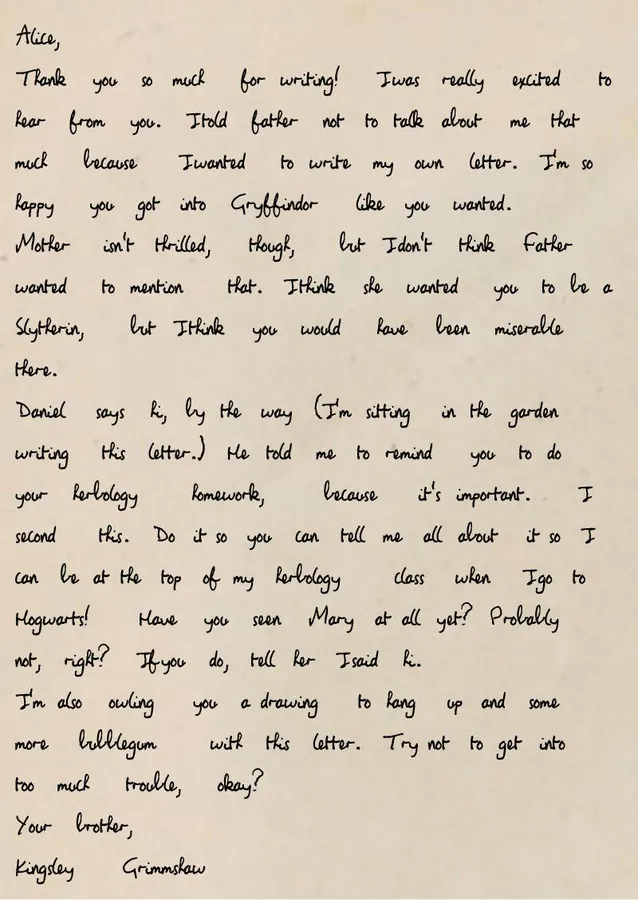 Alice,
Thank you so much for writing! I was really excited to
hear from you. I told father not to talk about me that
much because I wanted to write my own letter. I'm so
happy you got into Gryffindor like you wanted.
Mother isn't thrilled, though, but I don't think Father
wanted to mention that. I think she wanted you to be a
Slytherin, but I think you would have been miserable
there.
Daniel says hi, by the way (I'm sitting in the garden
writing this letter.) He told me to remind you to do
your herbology homework, because it's important. I
second this. Do it so you can tell me all about it so I
can be at the top of my herbology class when I go to
Hogwarts! Have you seen Mary at all yet? Probably
not, right? If you do, tell her I said hi.
I'm also owling you a drawing to hang up and some
more bubblegum with this letter. Try not to get into
too much trouble, okay?
Your brother,
Kingsley Grimmshaw